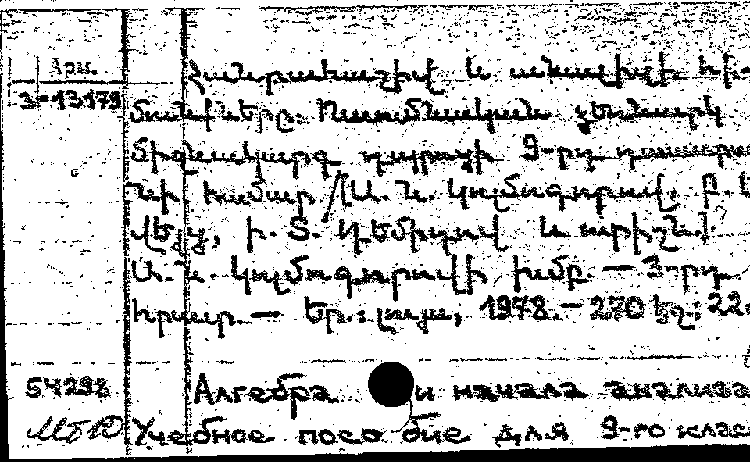 Հրմ.
3-13179
Հանրահաշիվ և անալիզի հի-
մունքները։ Ուսումնական ձեռնարկ
միջնակարգ դպրոցի 9-րդ դասարա
նի համար /Ա. Ն. Կոլմոգորով, Բ. Ե.
Վեյց, Ի. Տ. Դեմիդով և ուրիշն.]
Ա. Ն. Կոլմոգորովի խմբ. — 3-րդ
հրատ. — Եր.: Լույս, 1978. — 270 էջ; 22
54298 Алгебра и начала анализа
Учебное пособие для 9-го клас